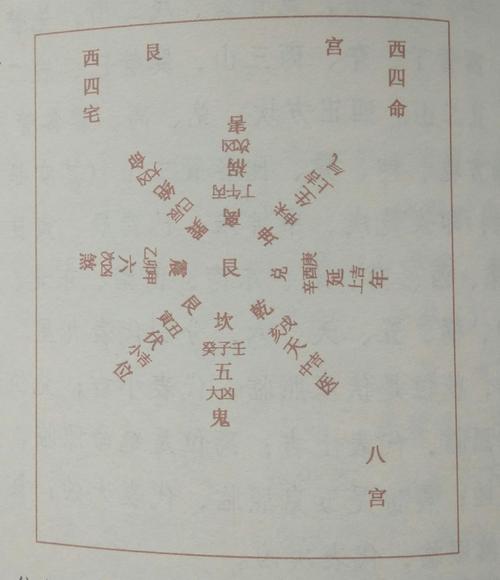 西四宅
艮宫
西四命
离丁午丙祸次凶害
坤生上吉气
兑辛酉庚延上吉年
乾亥戌天中吉医
坎癸子壬五大凶鬼
艮寅丑伏小吉位
震乙卯甲六次凶煞
巽巳辰绝大凶命
艮
八宫